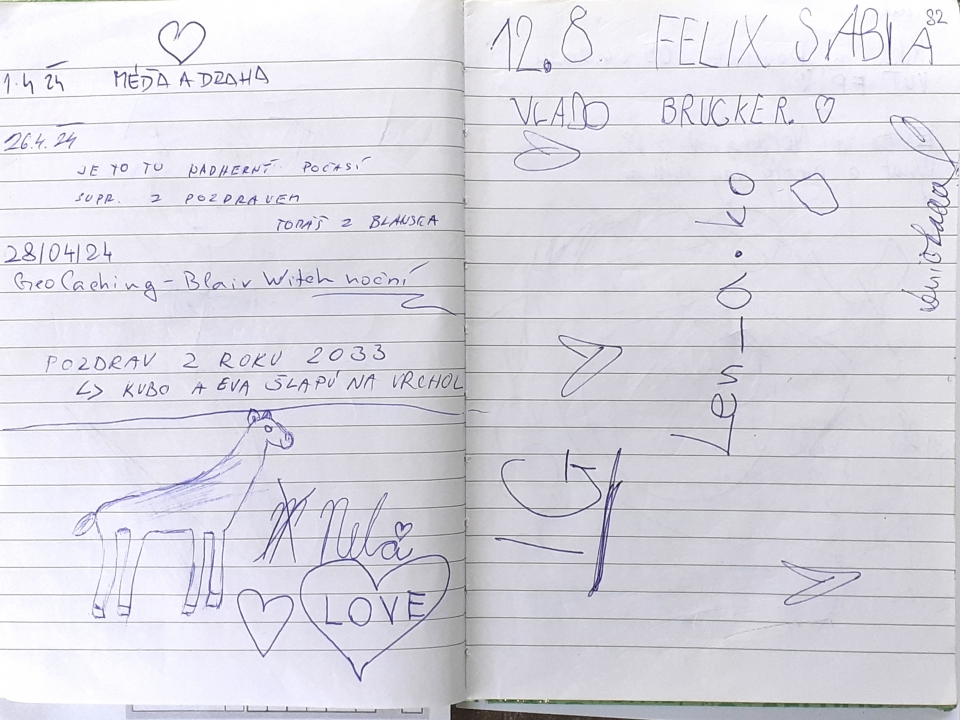 1.4 24 MÉĎA A DRAHA
26.4.24
JE TO TU NADHERNĚ POČASÍ
SUPR. Z POZDRAVEM
TOMÁŠ Z BLANSKA
28/04/24
GeoCaching - Blair Witch noční
POZDRAV Z ROKU 2033
↳ KUBO A EVA ŠLAPÚ NA VRCHOL
Nela
LOVE
12.8. FELIX SABIA 82
VLADO BRUCKER. ♡
Les-a.ko